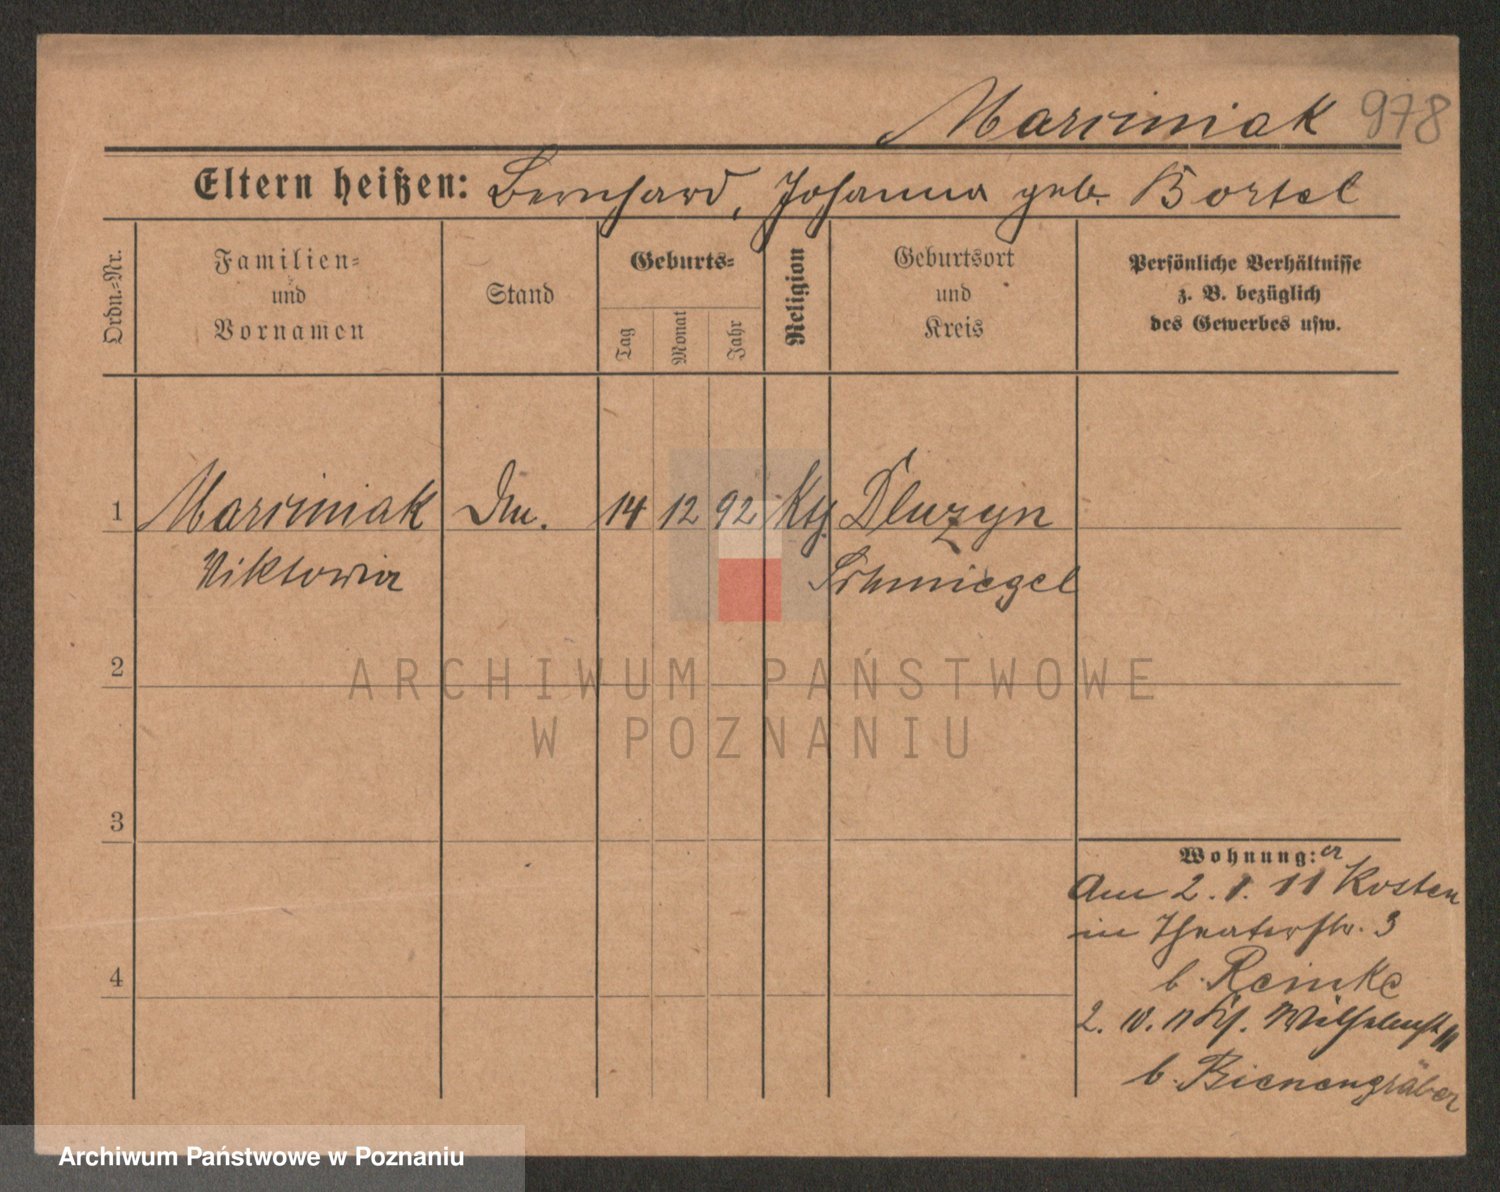 Marciniak 978
Eltern heißen: Bernhard, Johanna geb. Bortel
Ordn.-Nr.
Familien-
und
Vornamen
Stand
Geburts-
Tag
Monat
Jahr
Religion
Geburtsort
und
Kreis
Persönliche Verhältnisse
z. B. bezüglich
des Gewerbes usw.
1 Marciniak Dm. 14 12 92 Kth. Dluzyn
Viktoria Schmiegel
2
ARCHIWUM PAŃSTWOWE
W POZNANIU
3
Wohnung: er
Am 2. 1. 11 Kosten
in Theaterstr. 3
b. Reinke
2. IV. 11 Wilhelmstr
b. Bienengräber
4
Archiwum Państwowe w Poznaniu